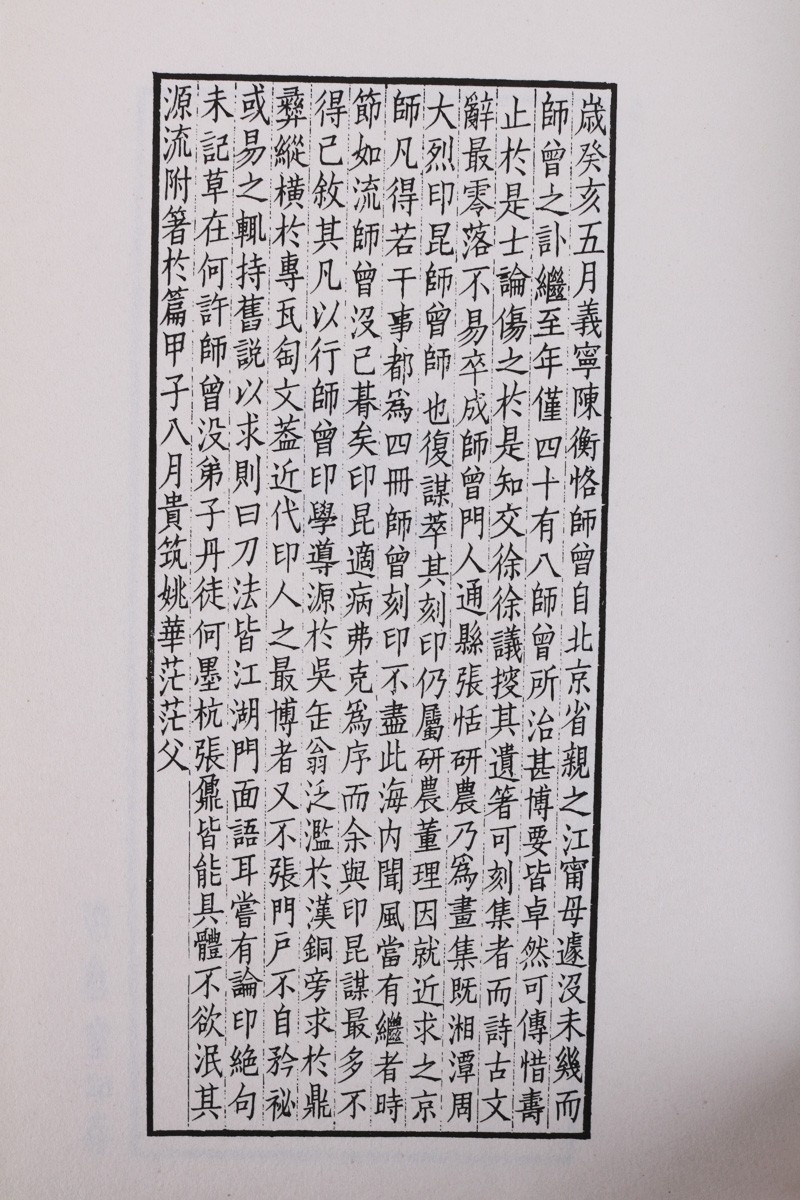 歲癸亥五月義寧陳衡恪師曾自北京省親之江甯母遽沒未幾而
師曾之訃繼至年僅四十有八師曾所治甚博要皆卓然可傳惜壽
止於是士論傷之於是知交徐徐議挍其遺箸可刻集者而詩古文
辭最零落不易卒成師曾門人通縣張恬研農乃爲畫集既湘潭周
大烈印昆師曾師也復謀萃其刻印仍屬研農董理因就近求之京
師凡得若干事都爲四冊師曾刻印不盡此海內聞風當有繼者時
節如流師曾沒已朞矣印昆適病弗克爲序而余與印昆謀最多不
得已敘其凡以行師曾印學導源於吳缶翁泛濫於漢銅旁求於鼎
彝縱橫於專瓦匋文葢近代印人之最博者又不張門戶不自矜祕
或易之輒持舊說以求則曰刀法皆江湖門面語耳嘗有論印絕句
未記草在何許師曾沒弟子丹徒何墨杭張鼐皆能具體不欲泯其
源流附箸於篇甲子八月貴筑姚華茫茫父